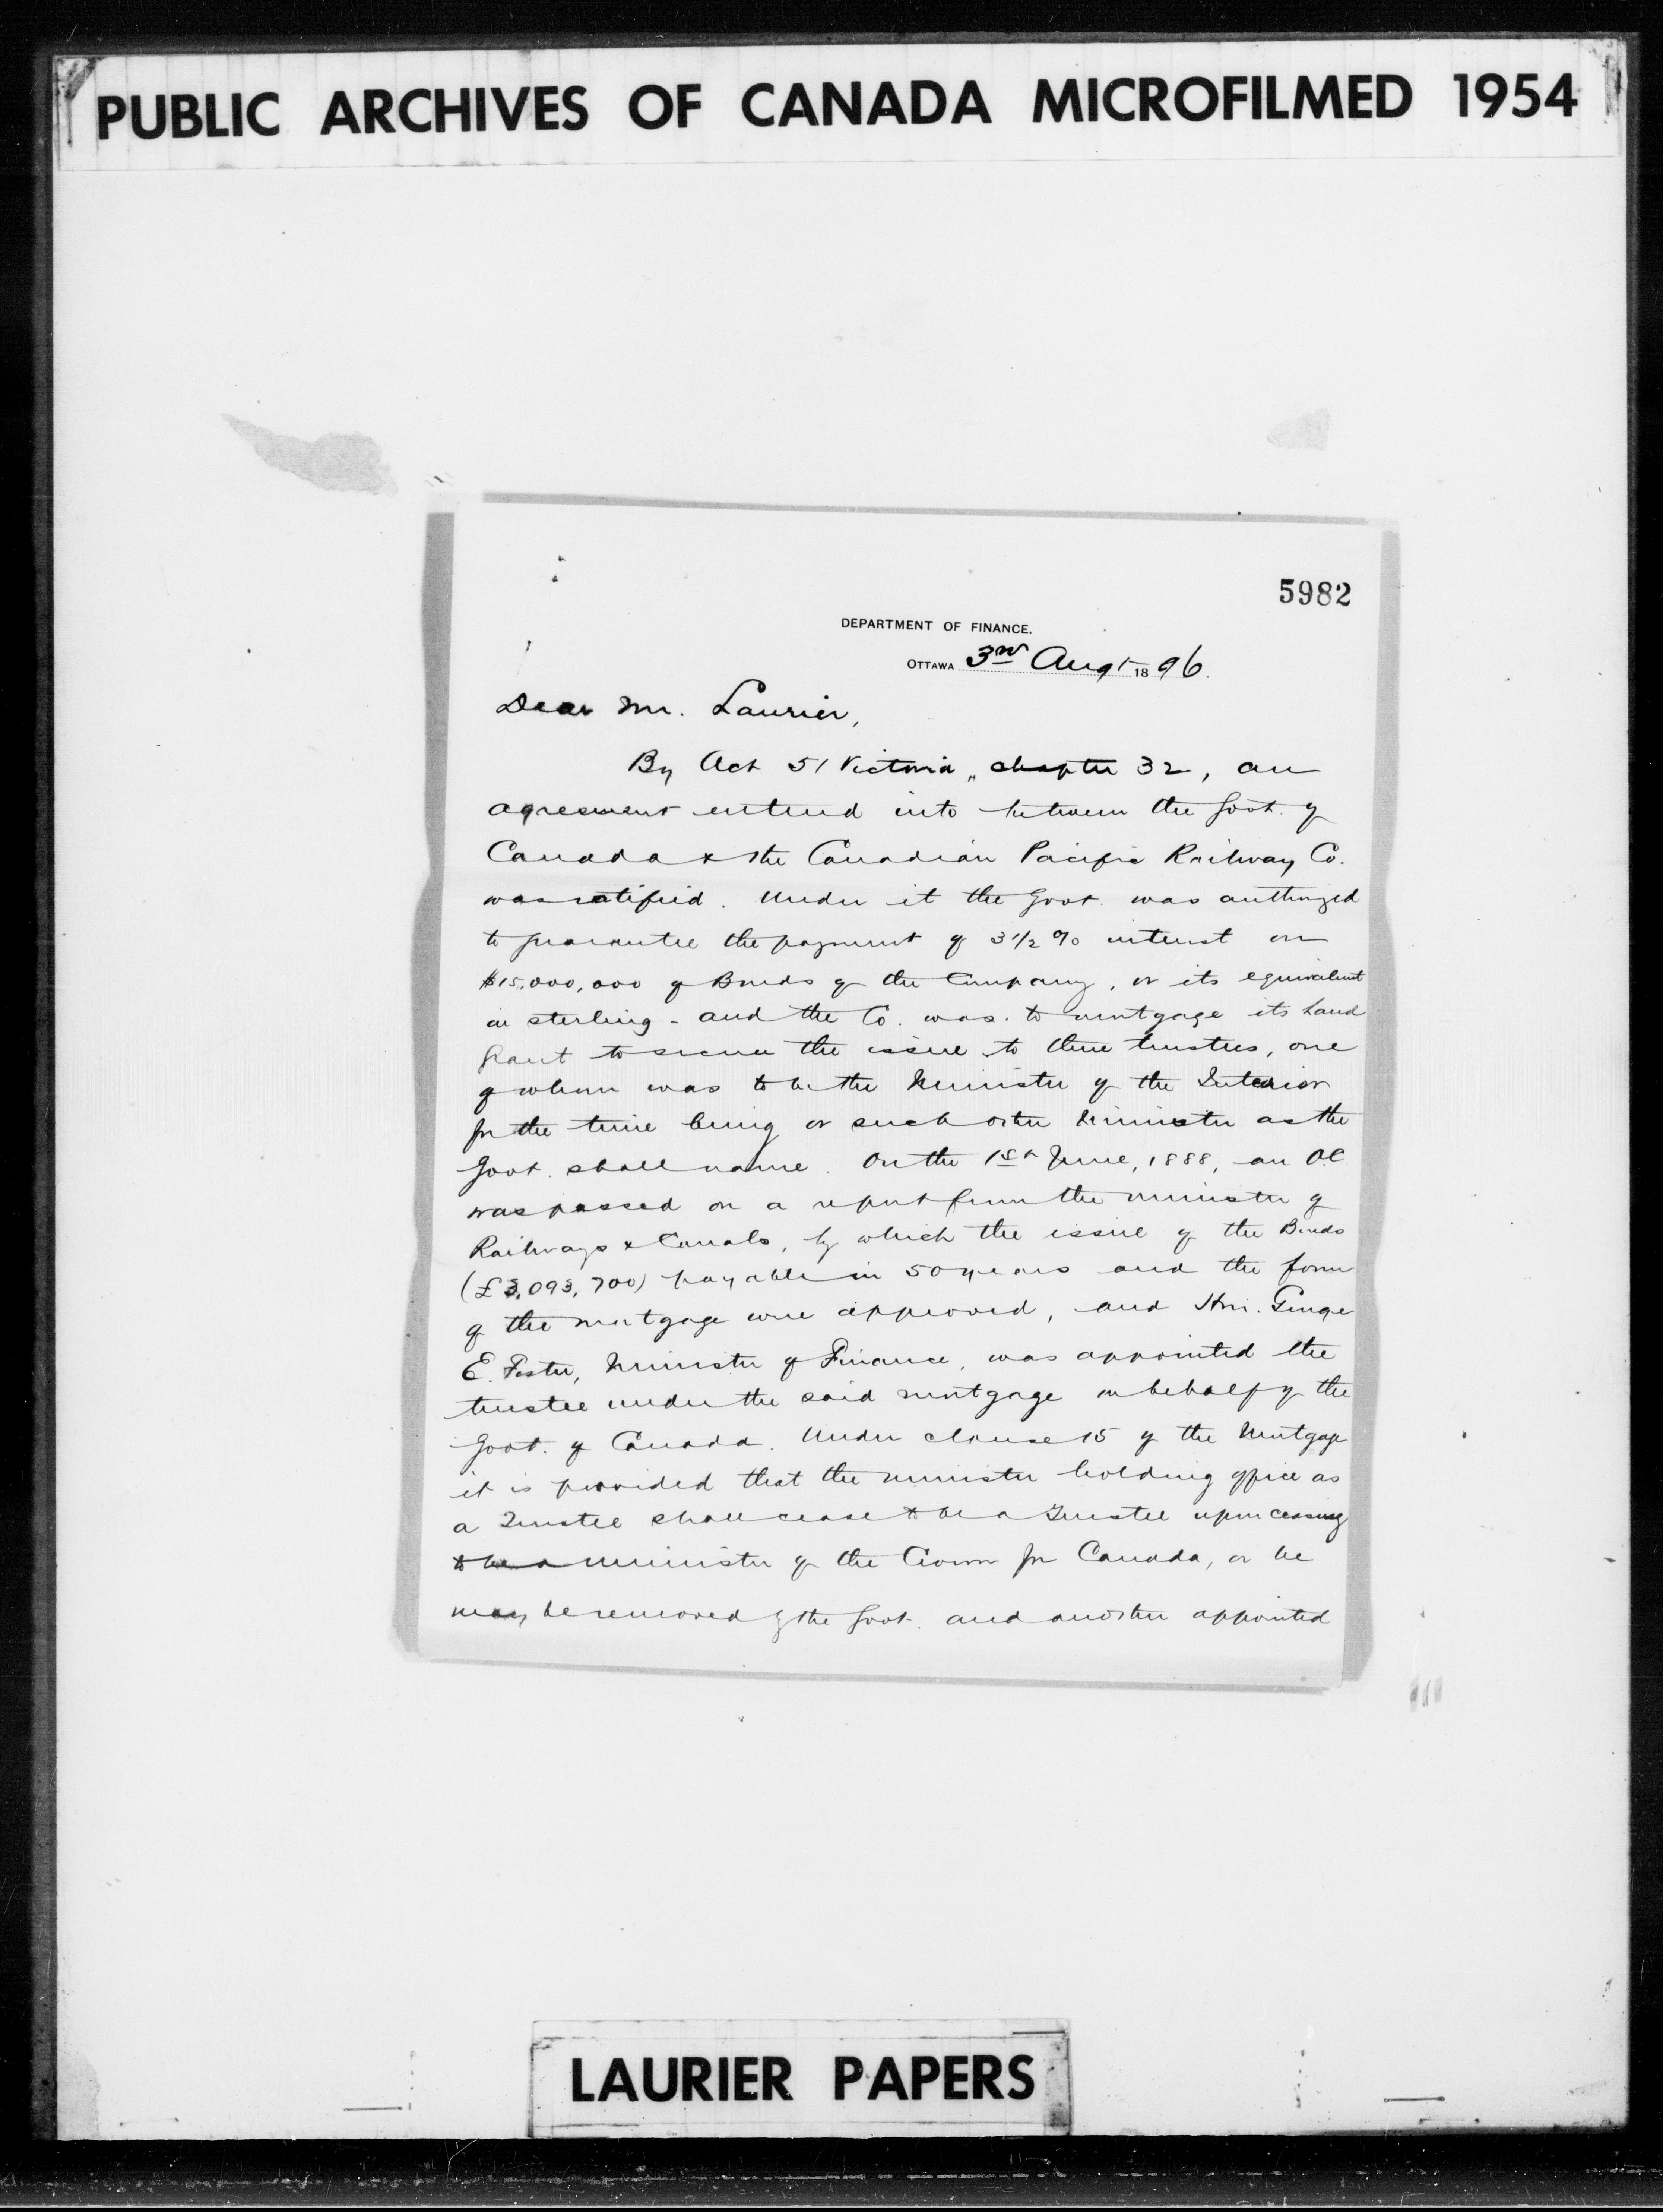 PUBLIC ARCHIVES OF CANADA MICROFILMED 1954
5982
DEPARTMENT OF FINANCE.
OTTAWA 3rd Augt 1896.
Dear Mr. Laurier,
By Act 51 Victoria, chapter 32, an
agreement entered into between the Govt. of
Canada & the Canadian Pacific Railway Co.
was ratified. Under it the Govt. was authorized
to guarantee the payment of 3 1/2 % interest on
$15,000,000 of Bonds of the Company, or its equivalent
in sterling - and the Co. was to mortgage its Land
Grant to secure the issue to three trustees, one
of whom was to be the Minister of the Interior
for the time being or such other Minister as the
Govt. shall name. On the 1st June, 1888, an O.C.
was passed on a report from the Minister of
Railways & Canals, by which the issue of the Bonds
(£3,093,700) payable in 50 years and the form
of the mortgage were approved, and Hon. George
E. Foster, Minister of Finance, was appointed the
trustee under the said mortgage on behalf of the
Govt. of Canada. Under clause 15 of the Mortgage
it is provided that the minister holding office as
a Trustee shall cease to be a Trustee upon ceasing
to be a Minister of the Crown for Canada, or he
may be removed by the Govt. and another appointed
LAURIER PAPERS